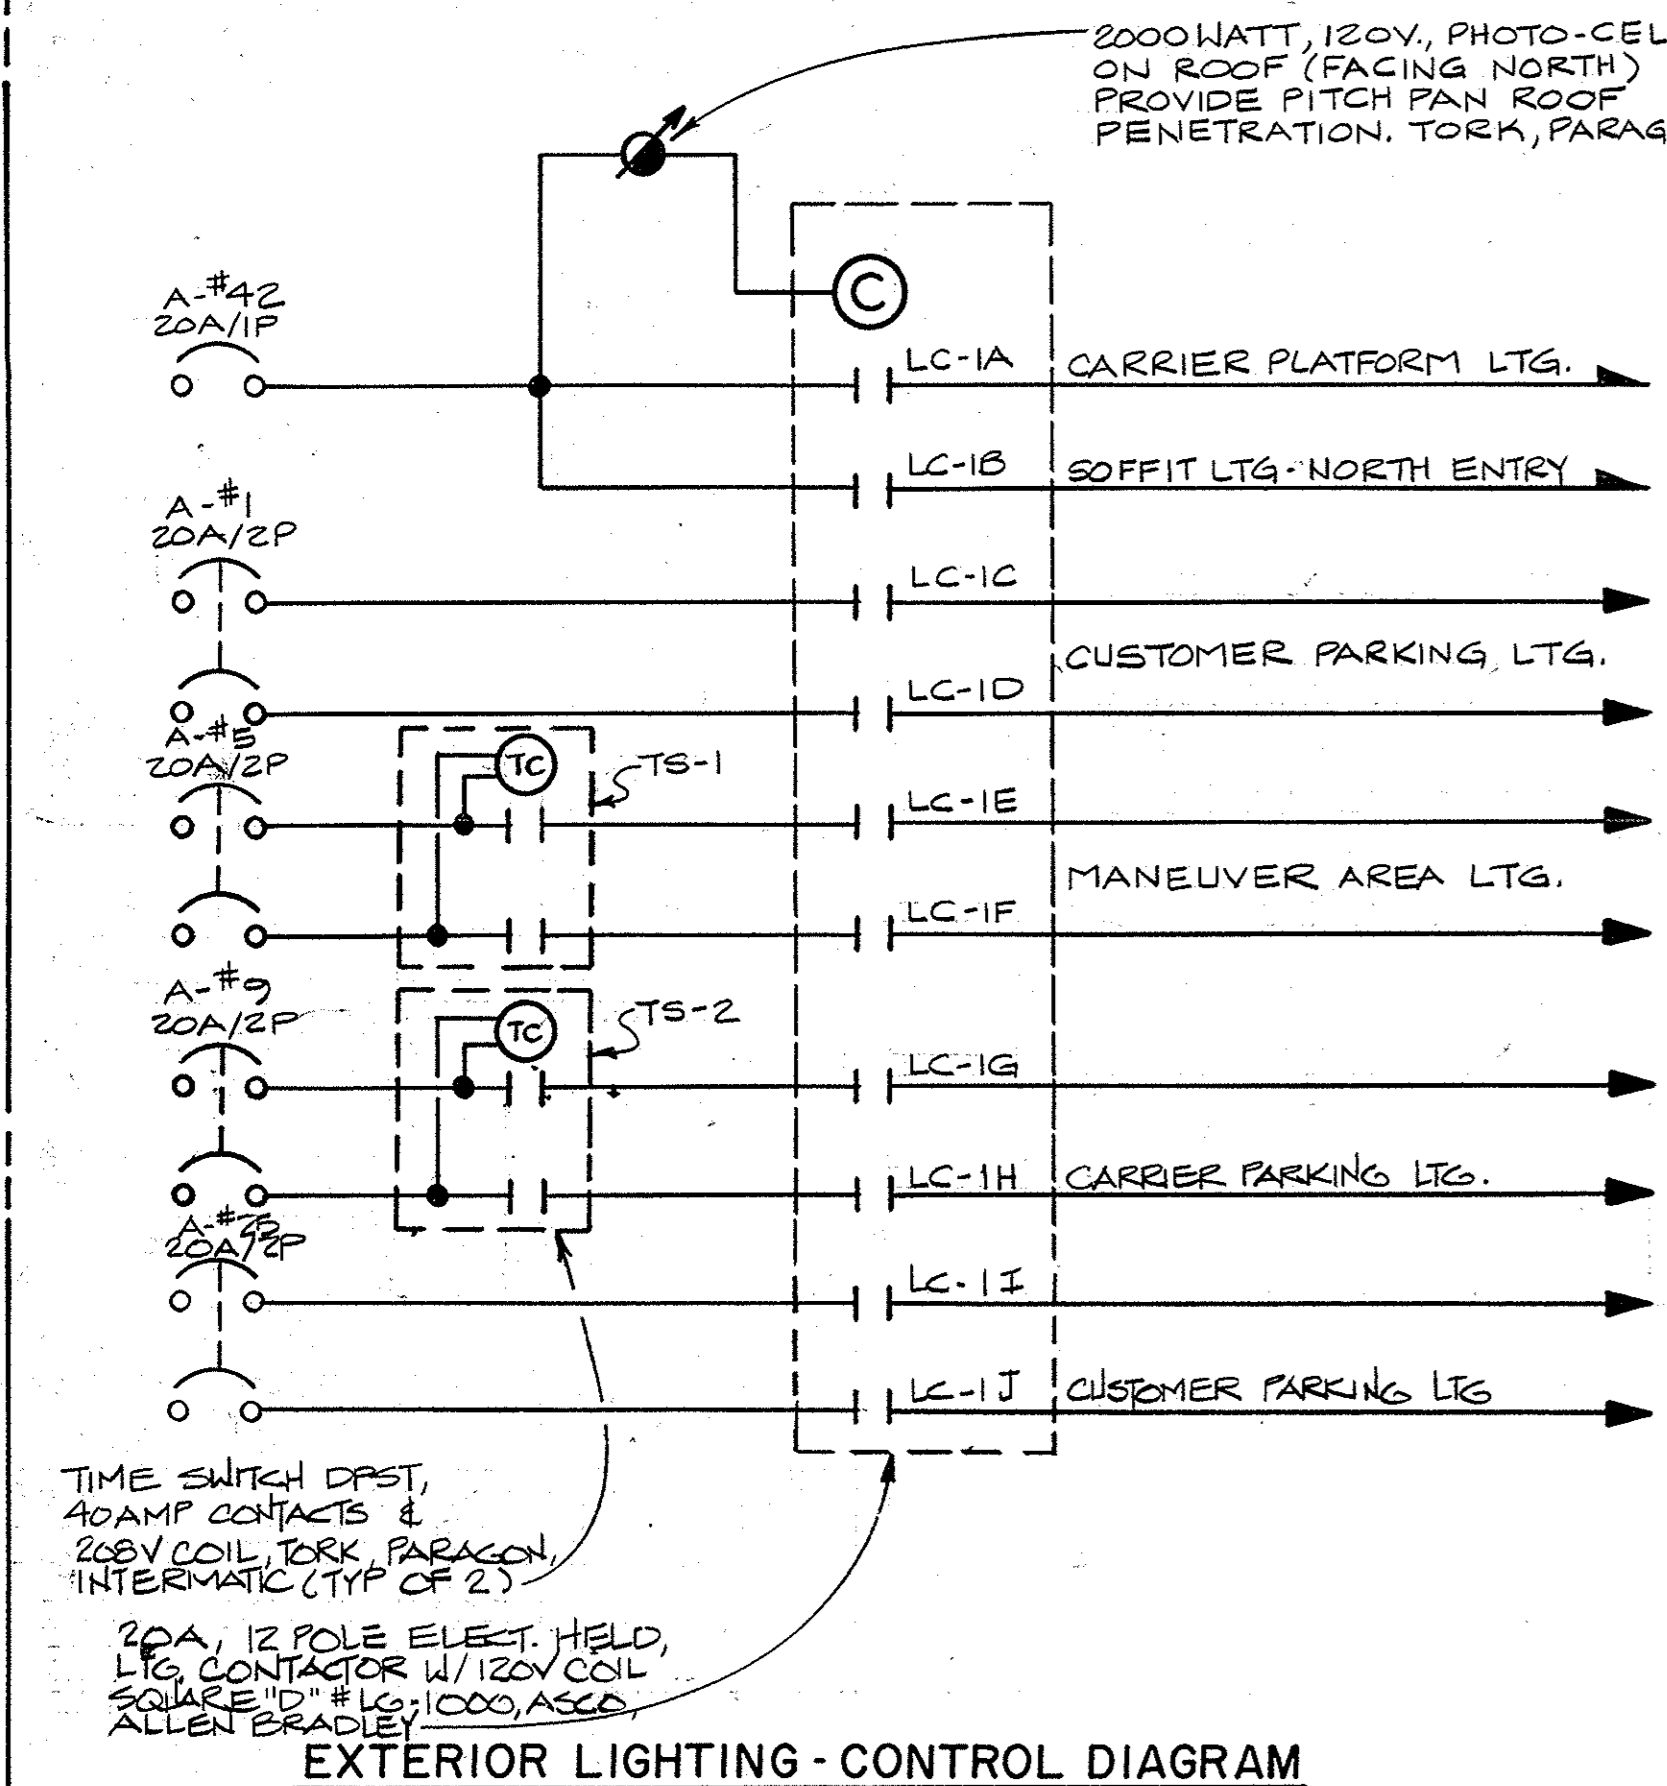 2000 WATT, 120V., PHOTO-CEL
ON ROOF (FACING NORTH)
PROVIDE PITCH PAN ROOF
PENETRATION. TORK, PARAG
C
A-#42
20A/1P
LC-1A CARRIER PLATFORM LTG.
LC-1B SOFFIT LTG-NORTH ENTRY
A-#1
20A/2P
LC-1C
CUSTOMER PARKING LTG.
LC-1D
A-#5
20A/2P
TC
TS-1
LC-1E
MANEUVER AREA LTG.
LC-1F
A-#9
20A/2P
TC
TS-2
LC-1G
LC-1H CARRIER PARKING LTG.
20A/2P
LC-1I
LC-1J CUSTOMER PARKING LTG
TIME SWITCH DPST,
40 AMP CONTACTS &
208V COIL, TORK, PARAGON,
INTERMATIC (TYP OF 2)
20A, 12 POLE ELECT. HELD,
LTG CONTACTOR W/120V COIL
SQUARE "D" # LG-1000, ASCO,
ALLEN BRADLEY
EXTERIOR LIGHTING - CONTROL DIAGRAM